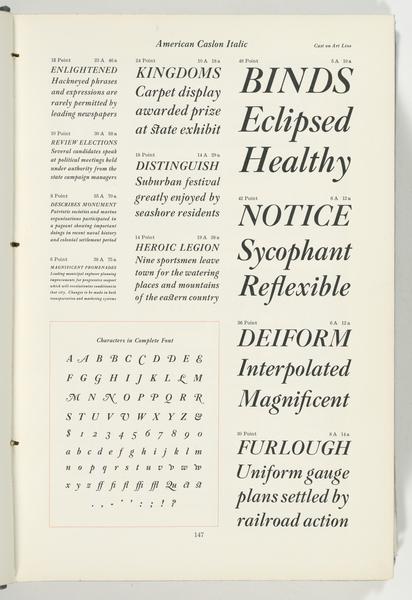 American Caslon Italic
Cast on Art Line
12 Point 22 A 46 a
ENLIGHTENED
Hackneyed phrases
and expressions are
rarely permitted by
leading newspapers
10 Point 30 A 58 a
REVIEW ELECTIONS
Several candidates speak
at political meetings held
under authority from the
state campaign managers
8 Point 35 A 70 a
DESCRIBES MONUMENT
Patriotic societies and marine
organizations participated in
a pageant showing important
doings in recent naval history
and colonial settlement period
6 Point 39 A 75 a
MAGNIFICENT PROMENADES
Leading municipal engineer planning
improvements for progressive seaport
which will revolutionize conditions in
that city. Changes to be made in both
transportation and marketing systems
24 Point 10 A 18 a
KINGDOMS
Carpet display
awarded prize
at state exhibit
18 Point 14 A 29 a
DISTINGUISH
Suburban festival
greatly enjoyed by
seashore residents
14 Point 19 A 39 a
HEROIC LEGION
Nine sportsmen leave
town for the watering
places and mountains
of the eastern country
48 Point 5 A 10 a
BINDS
Eclipsed
Healthy
42 Point 6 A 12 a
NOTICE
Sycophant
Reflexible
36 Point 6 A 12 a
DEIFORM
Interpolated
Magnificent
30 Point 8 A 14 a
FURLOUGH
Uniform gauge
plans settled by
railroad action
Characters in Complete Font
A A B B C C D D E E
F G G H I J K L L M
M N N O P P Q R R
S T U V V W X Y Z &
$ 1 2 3 4 5 6 7 8 9 0
a b c d e f g h i j k l m
n o p q r s t u v v w w
x y z ff fi fl ffi ffl Qu ct st
. , - ' ' : ; ! ?
147